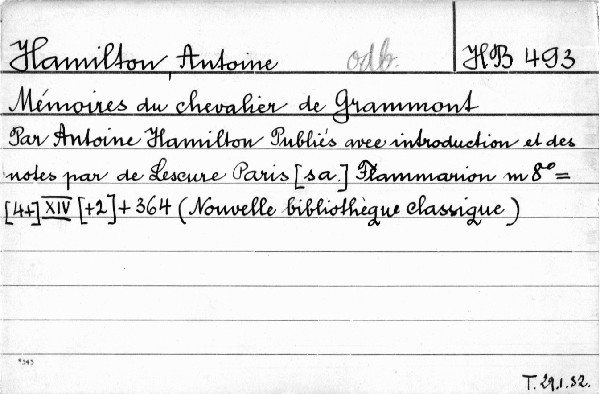 Hamilton, Antoine odb. HB 493
Mémoires du chevalier de Grammont
Par Antoine Hamilton Publiés avec introduction et des
notes par de Lescure Paris [sa.] Flammarion m 8° =
[4+] XIV [+2] + 364 (Nouvelle bibliothèque classique)
T. 29.1.32.